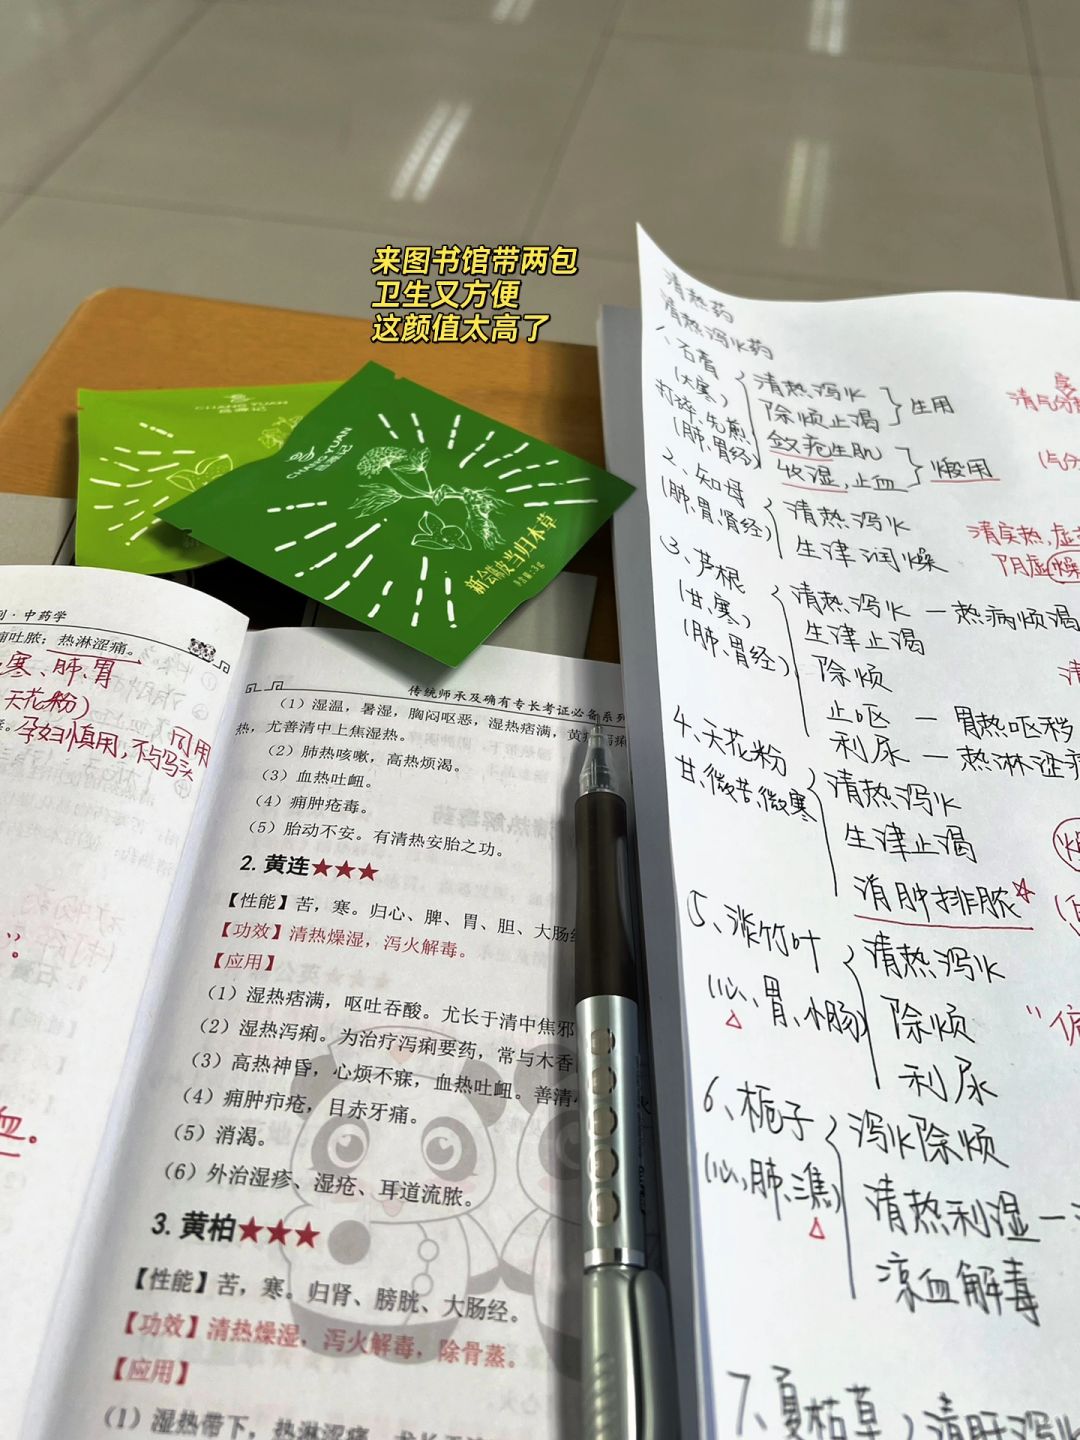 来图书馆带两包
卫生又方便
这颜值太高了
CHANG YUAN
CHANG YUAN
新会陈皮当归本草
净含量:3g
剂·中药学
痈吐脓；热淋涩痛。
寒、肺、胃
天花粉)
孕妇慎用,不与乌头
同用
血。
传统师承及确有专长考证必备系列
（1）湿温，暑湿，胸闷呕恶，湿热痞满，黄疸泻痢
热，尤善清中上焦湿热。
（2）肺热咳嗽，高热烦渴。
（3）血热吐衄。
（4）痈肿疮毒。
（5）胎动不安。有清热安胎之功。
2. 黄连★★★
【性能】苦，寒。归心、脾、胃、胆、大肠
【功效】清热燥湿，泻火解毒。
【应用】
（1）湿热痞满，呕吐吞酸。尤长于清中焦邪
（2）湿热泻痢。为治疗泻痢要药，常与木香
（3）高热神昏，心烦不寐，血热吐衄。善清
（4）痈肿疖疮，目赤牙痛。
（5）消渴。
（6）外治湿疹、湿疮、耳道流脓。
3. 黄柏★★★
【性能】苦，寒。归肾、膀胱、大肠经。
【功效】清热燥湿，泻火解毒，除骨蒸。
【应用】
（1）湿热带下，热淋涩痛。尤长于
清热药
清热泻火药
1、石膏
(大寒)
打碎先煎
(肺.胃经)
清热泻火
除烦止渴
生用
敛疮生肌
收湿,止血
煅用
清气分
(气分
2、知母
(肺.胃.肾经)
清热泻火
生津润燥
清实热,虚
阴虚燥
3、芦根
(甘、寒)
(肺、胃经)
清热泻火 — 热病烦渴
生津止渴
除烦
止呕 — 胃热呕秽
利尿 — 热淋涩痛
清
4、天花粉
甘、微苦、微寒
清热泻火
生津止渴
消肿排脓☆
5、淡竹叶
(心、胃、小肠)
清热泻火
除烦
利尿
6、栀子
(心、肺、三焦)
泻火除烦
清热利湿 —
凉血解毒
7、夏枯草
清肝泻火